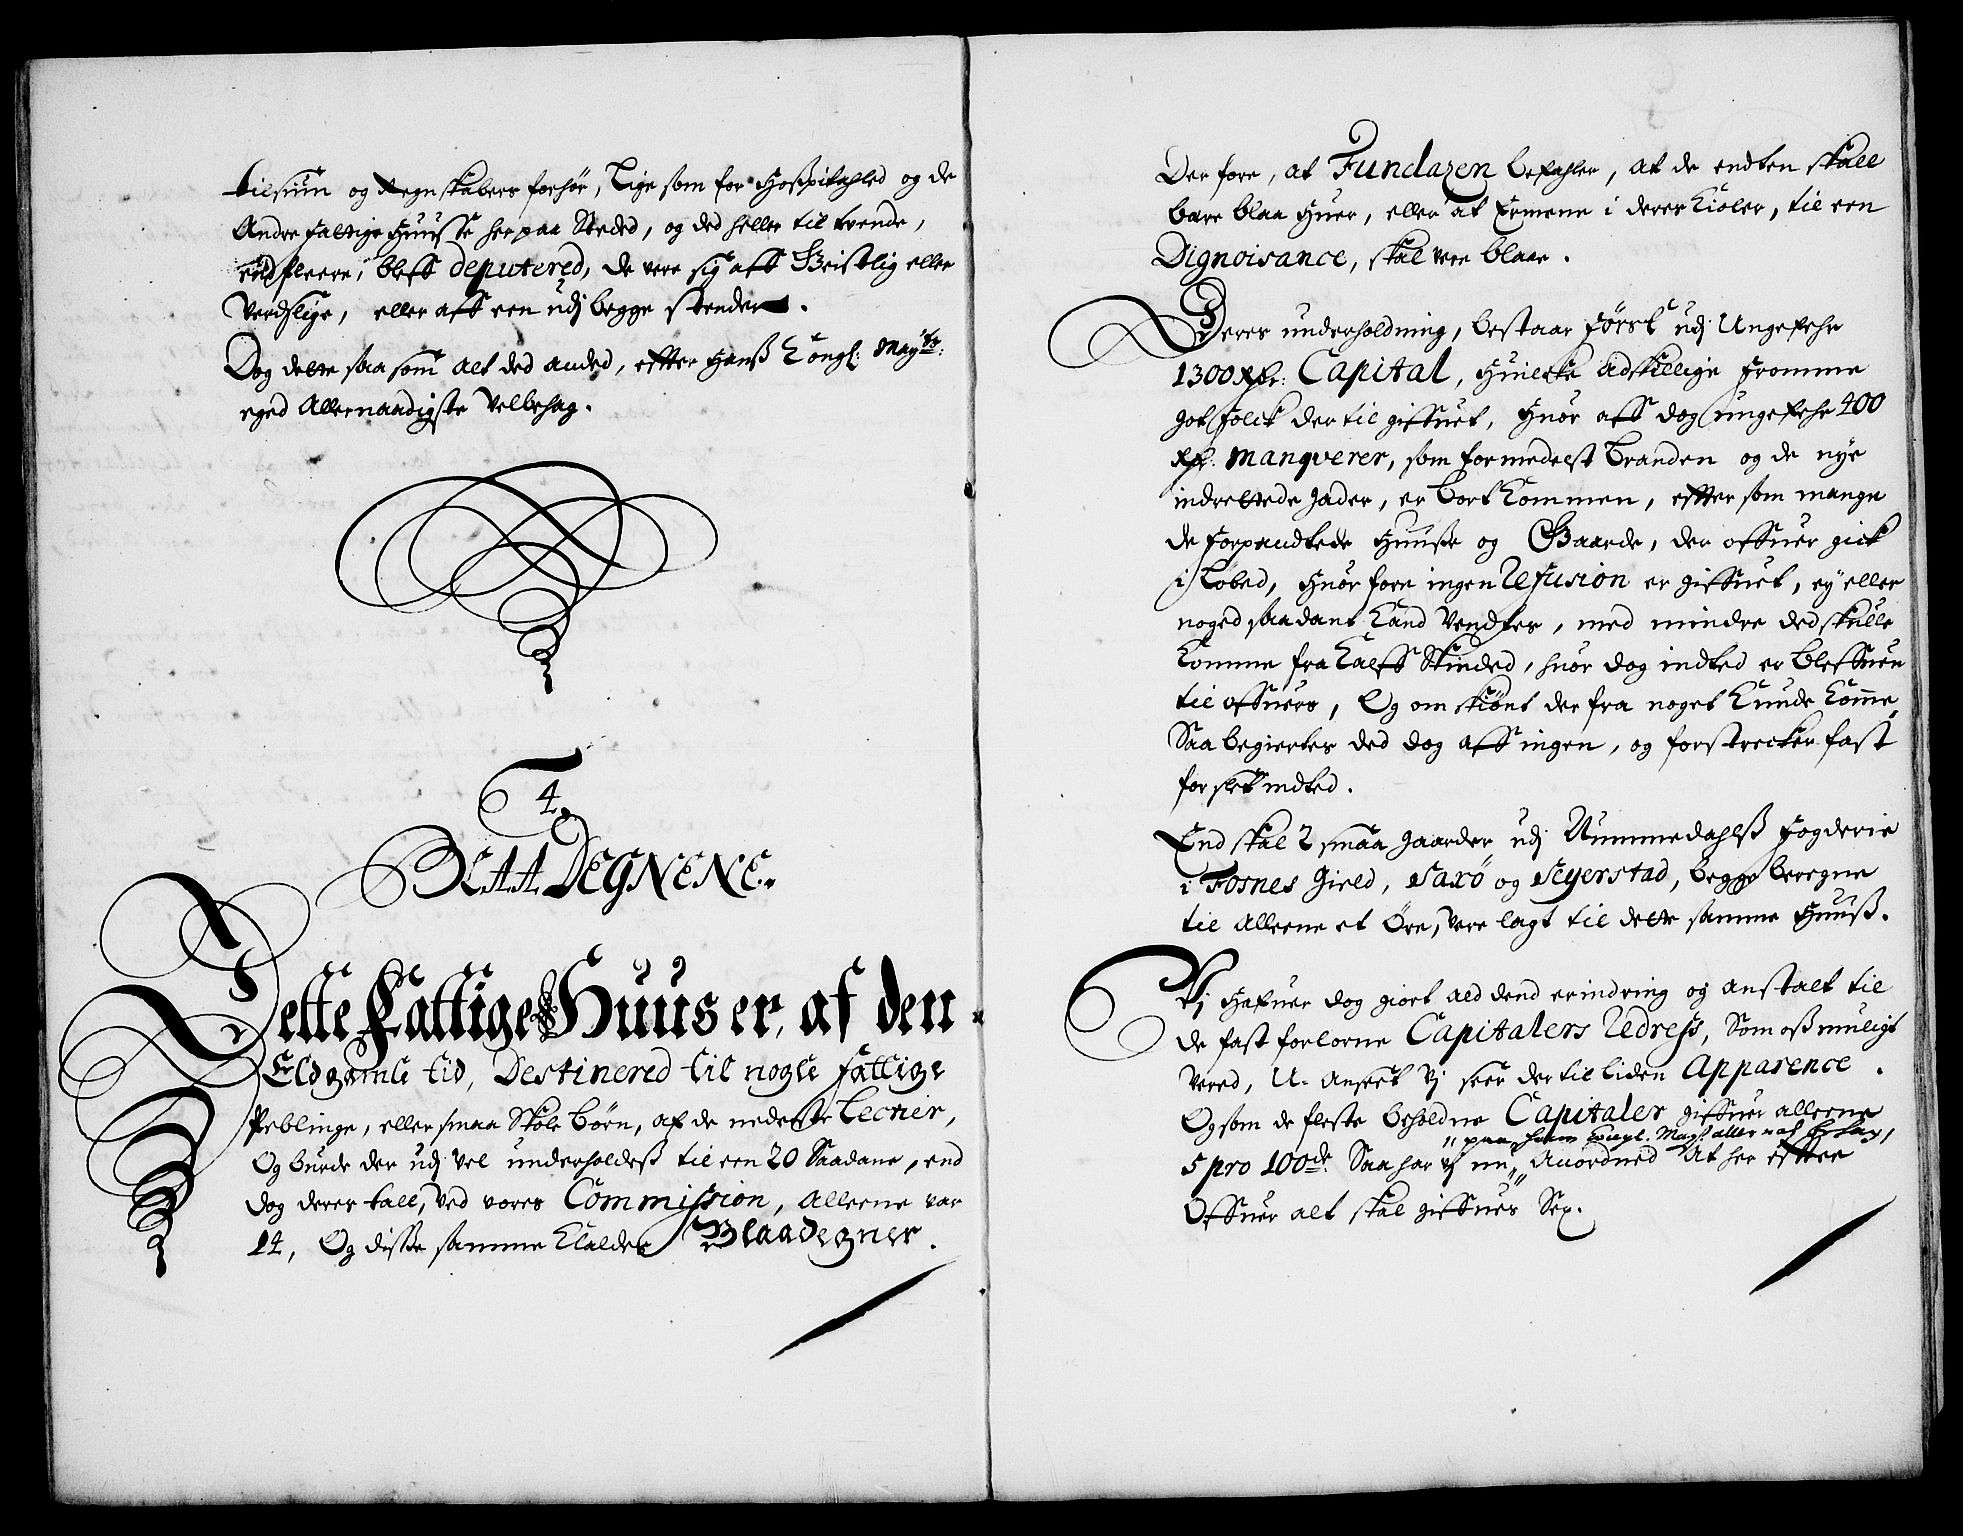 tilsiun og Regnskabers forhør, Lige som for Hospitahled og de
Andre fattige Huusse her paa Steded, og ded heller til tvende,
end fleere, bleff deputered, de vere sig aff Geistlig eller
Verdslige, eller aff een udj begge stender.
Dog dette saa som alt ded anded, effter Hanß Kongl: Mayts:
eged Allernaadigste Velbehag.
4.
BLAA DEGNENE.
Dette Fattiges Huus er, af den
Eldgamle tid, Destinered til nogle fattige
Peblinge, eller smaa Skole børn, af de nederste Lectier,
Og burde der udj vel underholdeß til een 20 Saadane, end
dog derer tall, ved vores Commission, alleene var
14, Og disse samme Kalder Blaadegner.
Der fore, at Fundazen befahler, at de endten skall
bære blaa Huer, eller at Ermene i derer Kioler, til een
Dignoisance, skal vere blaae.
Derer underholdning, bestaar først udj Ungefehr
1300 Rdr: Capital, Huilcke adskillige Fromme
got folck der til giffuet, Huor aff dog ungefehr 400
Rdr: manqverer, som formedelst Branden og de nye
indrettede gader, er bort Kommen, effter som mange
de forpandtede Huusse og Gaarde, der offuer gick
i Løbed, Huor fore ingen Refusion er giffuet, ey eller
noged saadant Kand Ventes, med mindre ded skulle
Komme fra Kalff Skinded, huor dog indted er bleffuen
til offuers, Og om skiønt der fra noget Kunde Komme,
Saa begiertes ded dog aff ingen, og forstrecker fast
for slet indted.
End skal 2 smaa gaarder udj Nummedahlß Fogderie
i Fosnes Gield, Saxö og Seyerstad, begge beregne
til alleene et Öre, vere lagt til dette samme Huuß.
Vj Hafuer dog giort ald dend erindring og anstalt til
de fast forlorne Capitalers Redress, Som oß muligt
vered, U-anseet vj seer der til liden Apparence.
Og som de fleste beholdne Capitaler giffuer alleene
"paa hans Kongl. Mayts aller naad. behag,
5 pro 100de: Saa har vj nu " Anordned At her effter
Offuer alt skal giffues Sex.